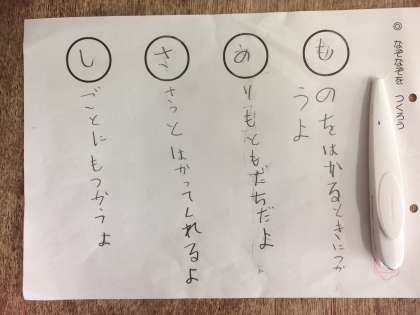 ◎ なぞなぞを つくろう
も のをはかるときにつか
うよ
め りもともだちだよ
さ さっとはかってくれるよ
し ごとにもつかうよ